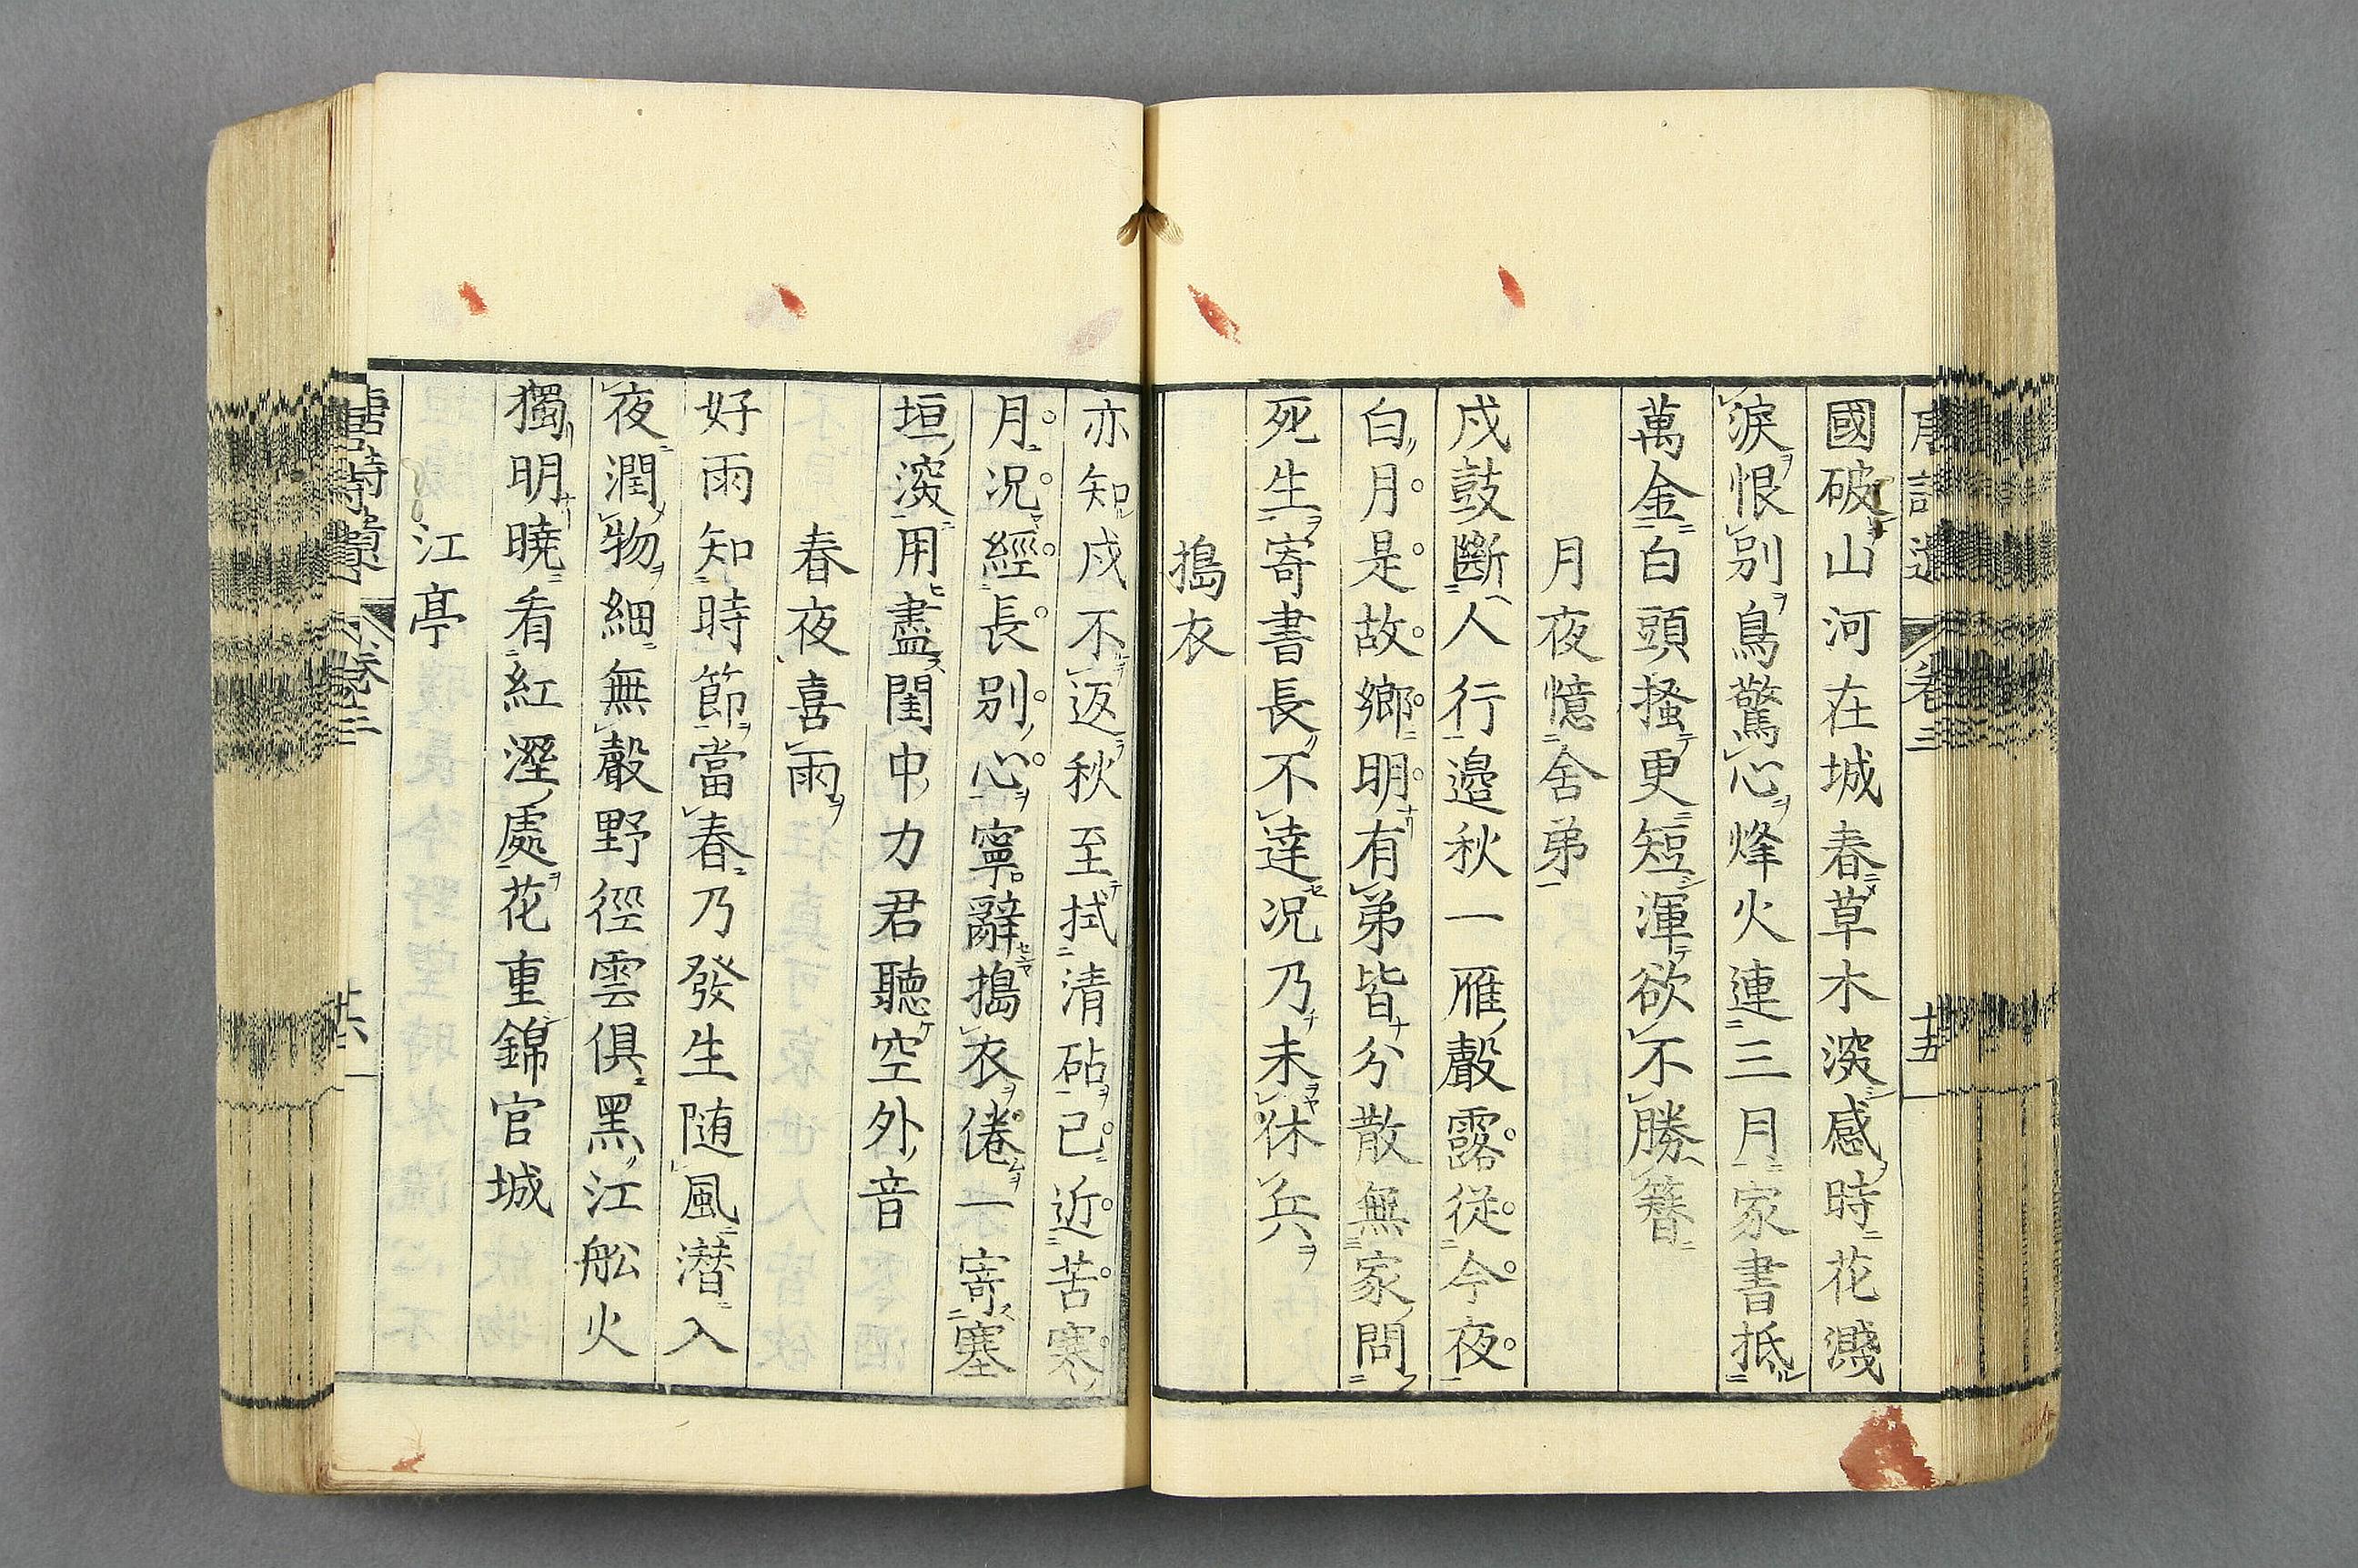 國破山河在城春草木深感時花濺
淚恨別鳥驚心烽火連三月家書抵
萬金白頭搔更短渾欲不勝簪
月夜憶舍弟
戍鼓斷人行邊秋一雁聲露從今夜
白月是故鄉明有弟皆分散無家問
死生寄書長不達况乃未休兵
搗衣
亦知戍不返秋至拭清砧已近苦寒
月况經長別心寧辭搗衣倦一寄塞
垣深用盡閨中力君聽空外音
春夜喜雨
好雨知時節當春乃發生随風潛入
夜潤物細無聲野徑雲俱黑江舩火
獨明曉看紅溼處花重錦官城
江亭
卷三
十五
卷三
十六